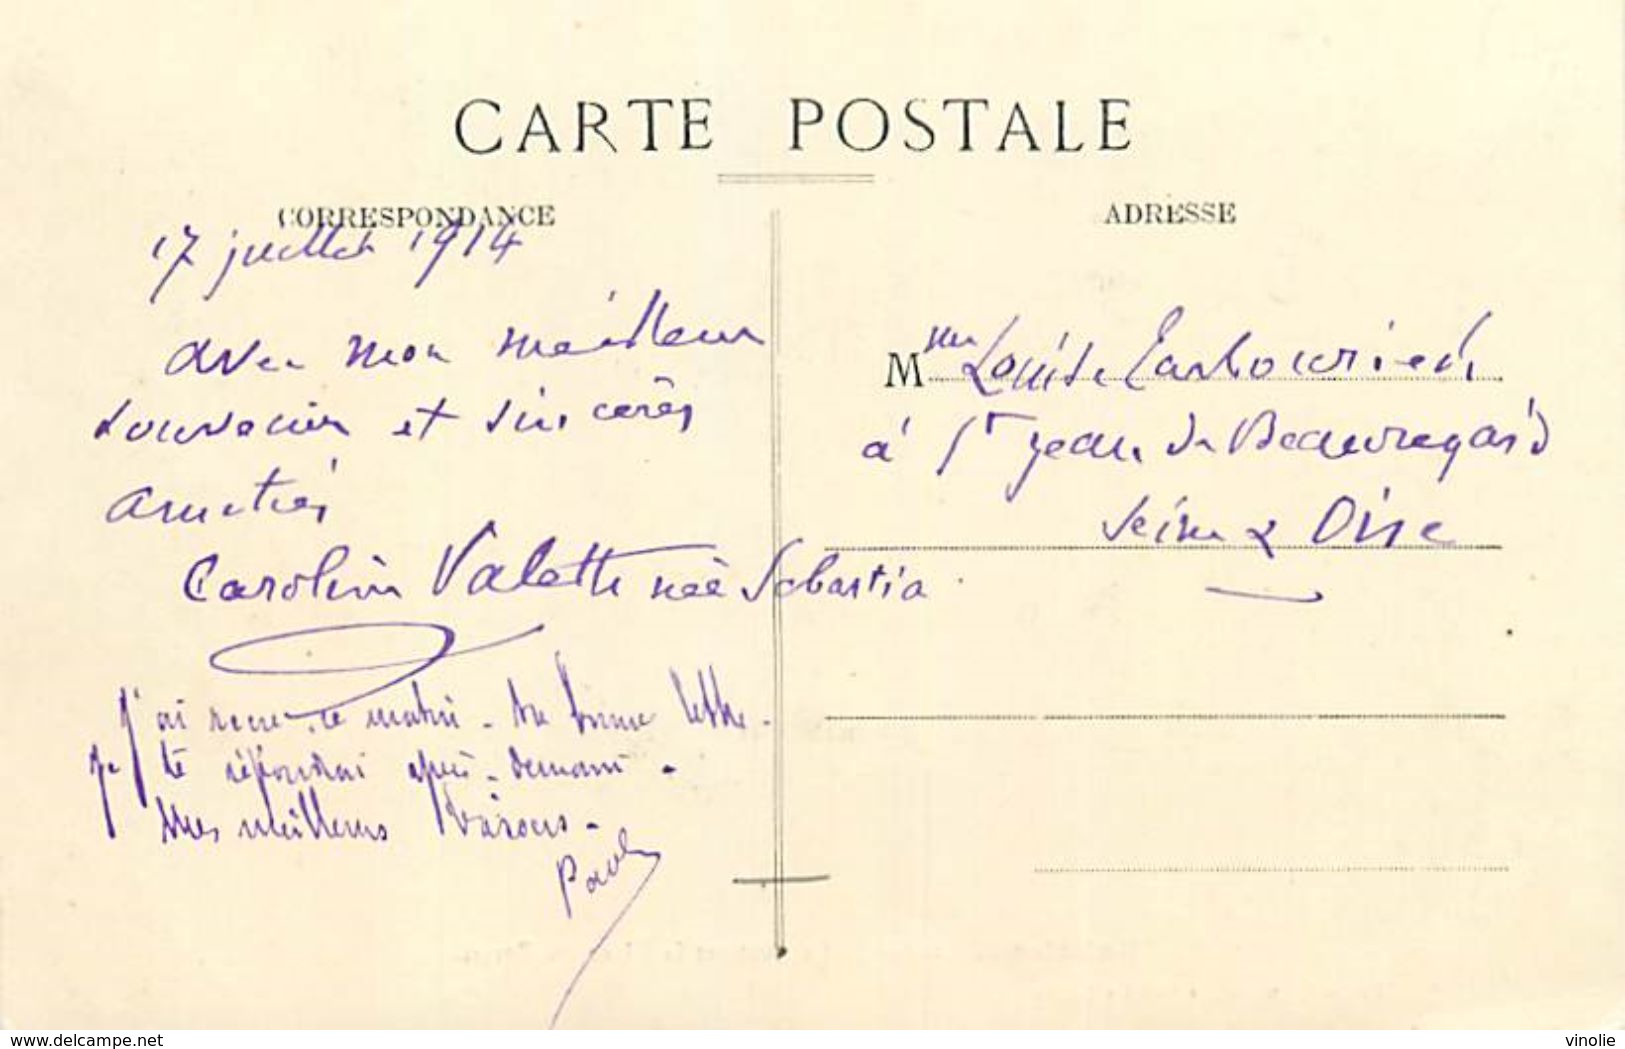 CARTE POSTALE
CORRESPONDANCE
17 juillet 1914
avec mon meilleur
souvenir et sincères
amitiés
Caroline Valette née Sebastia
J'ai reçu ce matin - ta bonne lettre -
Je te répondrai après-demain -
Mes meilleurs baisers -
Paul
ADRESSE
Mme Louise
à St Jean de Beauregard
Seine & Oise
delcampe.net
vinolie